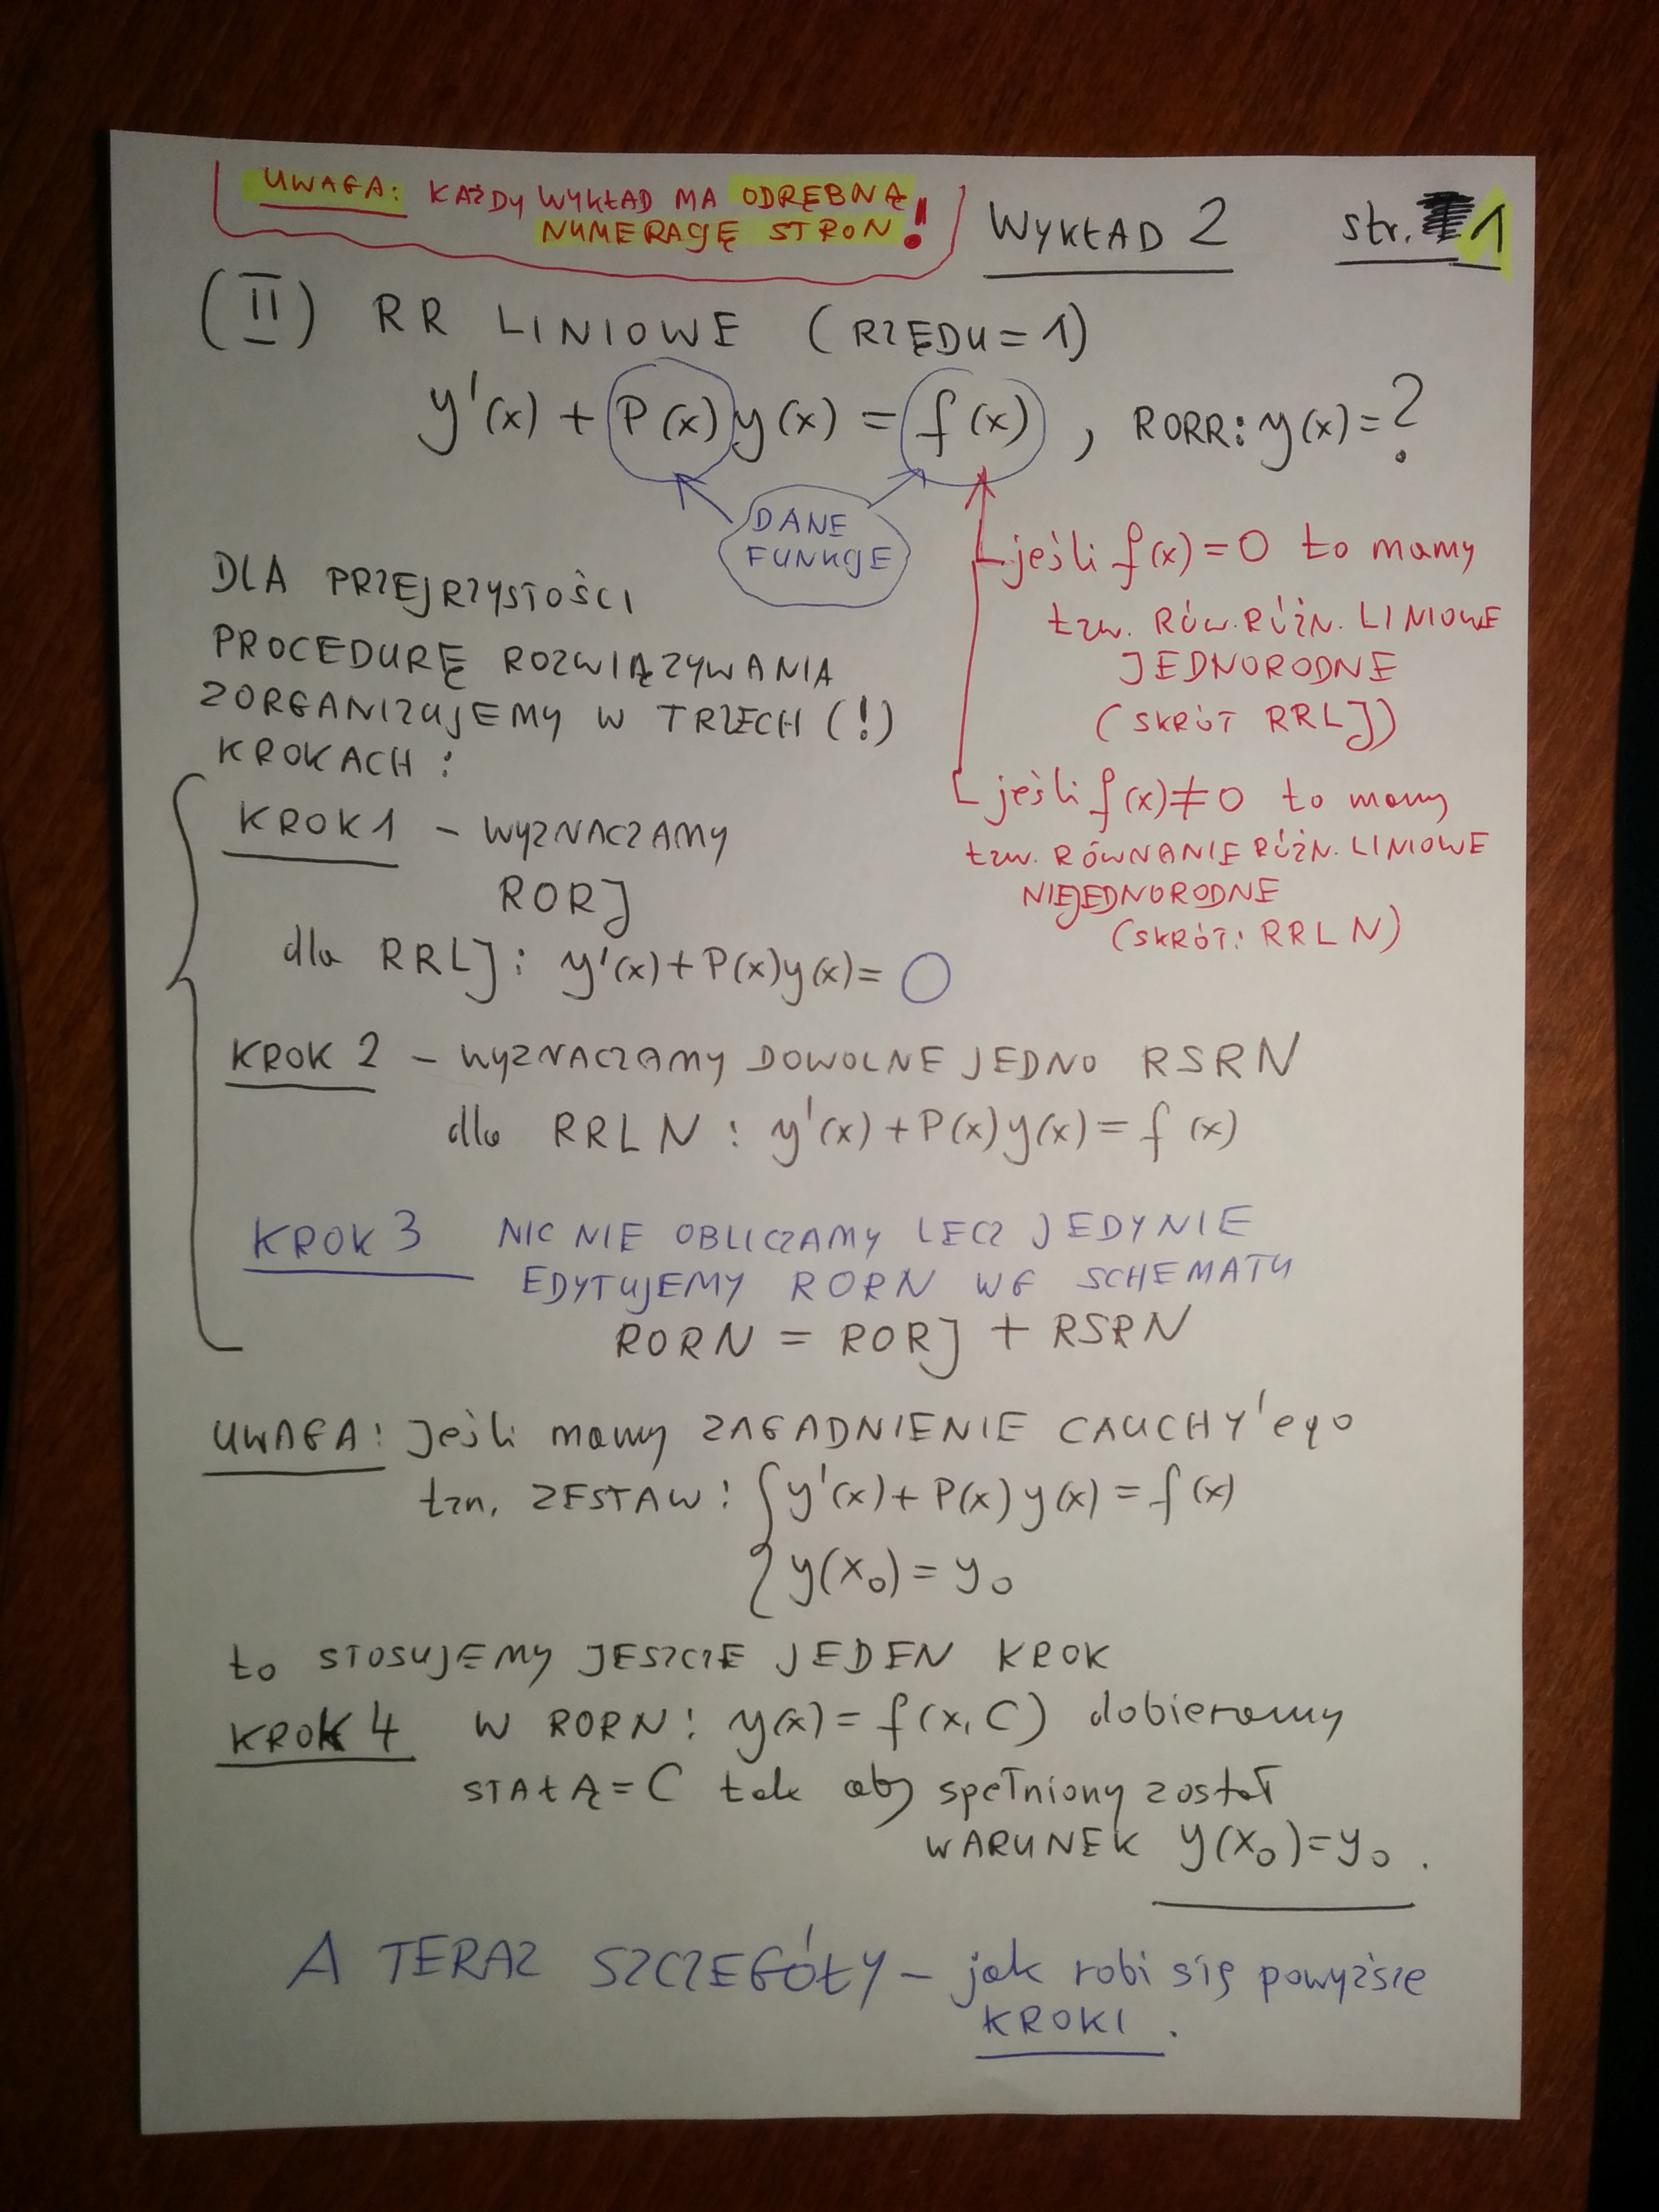 UWAGA: KAŻDY WYKŁAD MA ODRĘBNĄ
NUMERACJĘ STRON!
WYKŁAD 2 str. 1
(II) RR LINIOWE (RZĘDU = 1)
y'(x) + P(x) y(x) = f(x) , RORR: y(x) = ?
DANE
FUNKCJE
jeśli f(x) = 0 to mamy
tzw. RÓW. RÓŻN. LINIOWE
JEDNORODNE
(SKRÓT RRLJ)
jeśli f(x) ≠ 0 to mamy
tzw. RÓWNANIE RÓŻN. LINIOWE
NIEJEDNORODNE
(SKRÓT: RRLN)
DLA PRZEJRZYSTOŚCI
PROCEDURĘ ROZWIĄZYWANIA
ZORGANIZUJEMY W TRZECH (!)
KROKACH :
KROK 1 – WYZNACZAMY
RORJ
dla RRLJ : y'(x) + P(x)y(x) = 0
KROK 2 – WYZNACZAMY DOWOLNE JEDNO RSRN
dla RRLN : y'(x) + P(x)y(x) = f(x)
KROK 3 NIC NIE OBLICZAMY LECZ JEDYNIE
EDYTUJEMY RORN WG SCHEMATU
RORN = RORJ + RSRN
UWAGA: Jeśli mamy ZAGADNIENIE CAUCHY'ego
tzn. ZESTAW: { y'(x) + P(x) y(x) = f(x)
y(x₀) = y₀
to STOSUJEMY JESZCZE JEDEN KROK
KROK 4 W RORN: y(x) = f(x, C) dobieramy
STAŁĄ = C tak aby spełniony został
WARUNEK y(x₀) = y₀ .
A TERAZ SZCZEGÓŁY – jak robi się powyższe
KROKI .